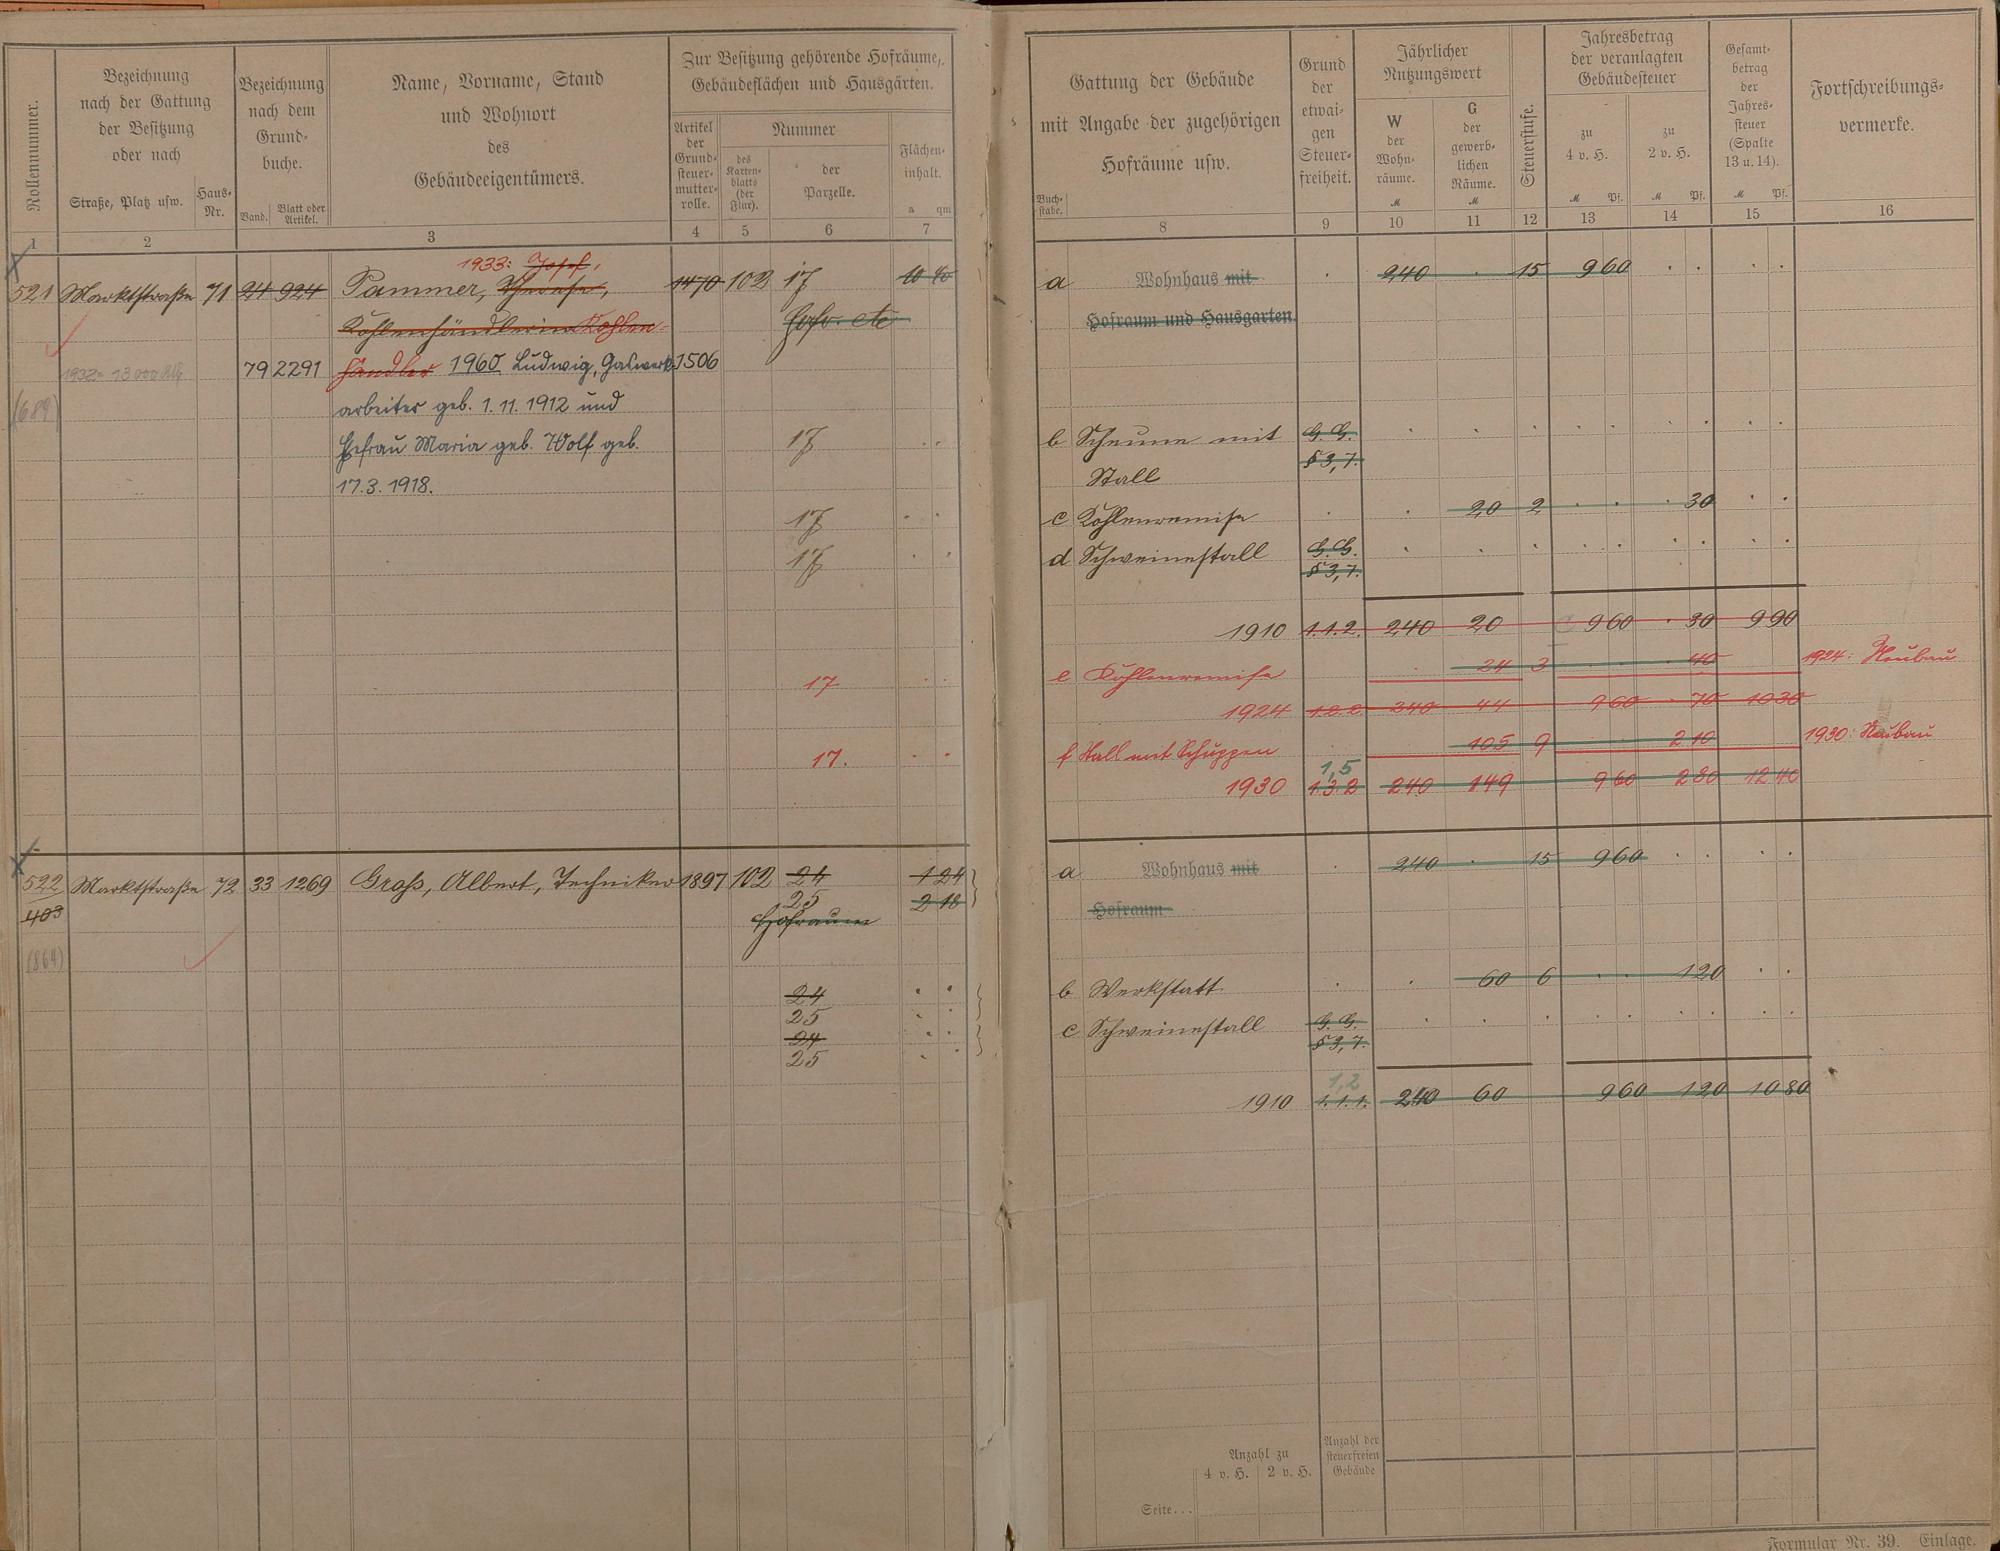 Rollennummer.
Bezeichnung
nach der Gattung
der Besitzung
oder nach
Straße, Platz usw.
Haus-
Nr.
Bezeichnung
nach dem
Grund-
buche.
Band.
Blatt oder
Artikel.
Name, Vorname, Stand
und Wohnort
des
Gebäudeeigentümers.
Zur Besitzung gehörende Hofräume,
Gebäudeflächen und Hausgärten.
Artikel
der
Grund-
steuer-
mutter-
rolle.
Nummer
des
Karten-
blatts
(der
Flur).
der
Parzelle.
Flächen-
inhalt.
a qm
1 2 3 4 5 6 7
1933: Josef,
521 Marktstraße 71 24 924 Pammer, Therese, 1470 102 17 10 40
Kohlenhändlerin Kohlen- Hofr. etc
1932= 13000 RM 79 2291 händler 1960 Ludwig, Gaswerk- 1506
(689) arbeiter geb. 1. 11. 1912 und
Ehefrau Maria geb. Wolf geb. 17
17. 3. 1918.
17
17
17
17.
522 Marktstraße 72 33 1269 Groß, Albert, Techniker 1897 102 24 1 24
403 25 2 18
Hofraum
(864)
24
25
24
25
Gattung der Gebäude
mit Angabe der zugehörigen
Hofräume usw.
Buch-
stabe.
Grund
der
etwai-
gen
Steuer-
freiheit.
Jährlicher
Nutzungswert
W
der
Wohn-
räume.
M
G
der
gewerb-
lichen
Räume.
M
Steuerstufe.
Jahresbetrag
der veranlagten
Gebäudesteuer
zu
4 v. H.
M Pf.
zu
2 v. H.
M Pf.
Gesamt-
betrag
der
Jahres-
steuer
(Spalte
13 u. 14).
M Pf.
Fortschreibungs-
vermerke.
8 9 10 11 12 13 14 15 16
a Wohnhaus mit 240 15 9 60
Hofraum und Hausgarten.
b Scheune mit G. G.
§ 3,7.
Stall
c Kohlenremise 20 2 30
d Schweinestall G. G.
§ 3,7.
1910 1.1.2. 240 20 9 60 30 9 90
e Kohlenremise 24 3 40 1924: Neubau
1924 1.2.2. 240 44 9 60 70 10 30
f Stall mit Schuppen 105 9 2 10 1930: Neubau
1,5
1930 1.3.2 240 149 9 60 2 80 12 40
a Wohnhaus mit 240 15 9 60
Hofraum
b Werkstatt 60 6 1 20
c Schweinestall G. G.
§ 3,7.
1,2
1910 1.1.1. 240 60 9 60 1 20 10 80
Anzahl zu
4 v. H. 2 v. H.
Anzahl der
steuerfreien
Gebäude
Seite...
Formular Nr. 39. Einlage.